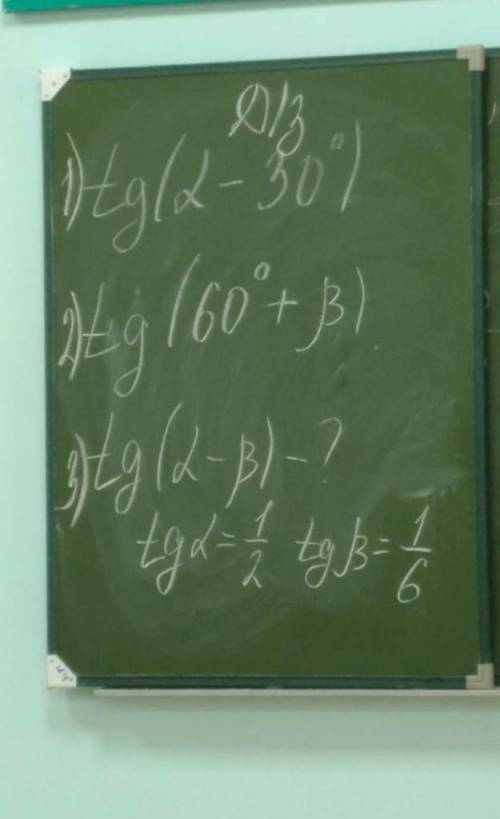 Д/з
1) tg(α - 30°)
2) tg(60° + β)
3) tg(α - β) - ?
tgα = 1/2 tgβ = 1/6